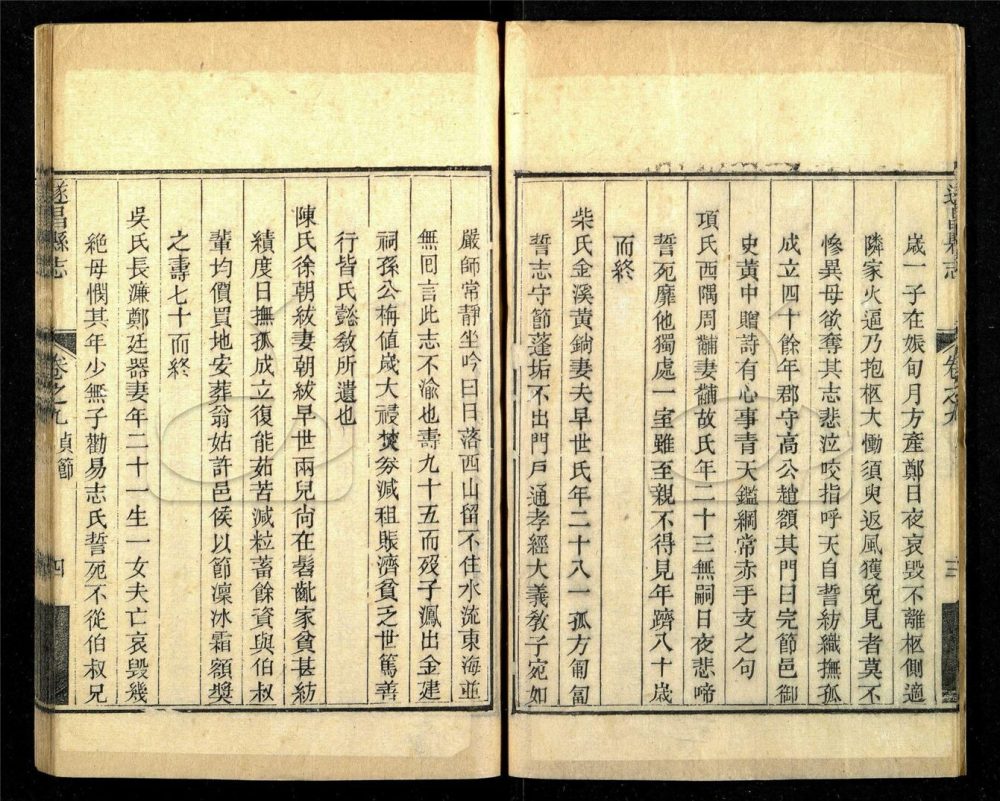 遂昌縣志
卷之九
三
歲一子在娠旬月方產鄭日夜哀毀不離柩側適
隣家火逼乃抱柩大慟須臾返風獲免見者莫不
慘異母欲奪其志悲泣咬指呼天自誓紡織撫孤
成立四十餘年郡守高公趙額其門曰完節邑御
史黃中贈詩有心事青天鑑綱常赤手支之句
項氏西隅周黼妻黼故氏年二十三無嗣日夜悲啼
誓死靡他獨處一室雖至親不得見年躋八十歲
而終
柴氏金溪黃鋿妻夫早世氏年二十八一孤方匍匐
誓志守節蓬垢不出門戶通孝經大義敎子宛如
嚴師常靜坐吟曰日落西山留不住水流東海並
無回言此志不渝也壽九十五而歿子鳳出金建
祠孫公梅値歲大祲焚劵減租賑濟貧乏世篤善
行皆氏懿敎所遺也
陳氏徐朝紱妻朝紱早世兩兒尙在髫齔家貧甚紡
績度日撫孤成立復能茹苦減粒蓄餘資與伯叔
輩均價買地安葬翁姑許邑侯以節凜冰霜額獎
之壽七十而終
吳氏長濂鄭廷器妻年二十一生一女夫亡哀毀幾
絶母憫其年少無子勸易志氏誓死不從伯叔兄
遂昌縣志
卷之九 貞節
四